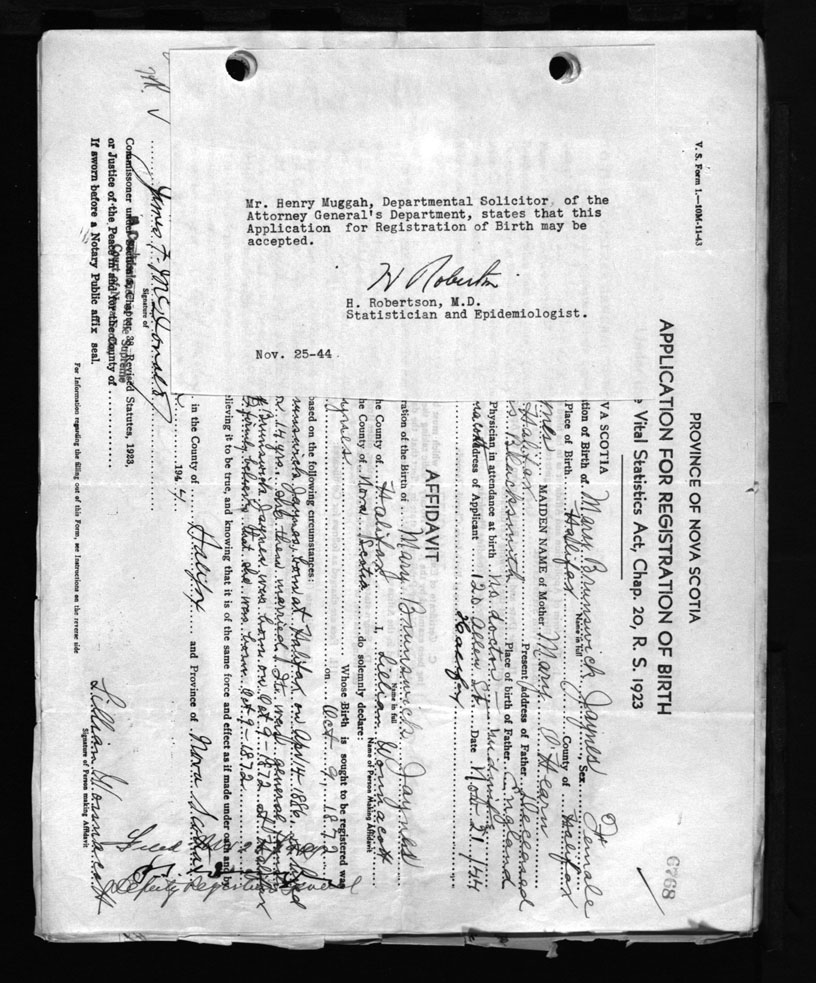 Mr. Henry Muggah, Departmental Solicitor of the
Attorney General's Department, states that this
Application for Registration of Birth may be
accepted.
H Robertson
H. Robertson, M.D.
Statistician and Epidemiologist.
Nov. 25-44.
V. S. Form 1.—10M-11-43
6768
PROVINCE OF NOVA SCOTIA
APPLICATION FOR REGISTRATION OF BIRTH
Vital Statistics Act, Chap. 20, R. S. 1923
VA SCOTIA
tion of Birth of Mary Brunswick Jaynes, Sex Female
Name in full
Place of Birth Halifax County of Halifax
MAIDEN NAME of Mother Mary O'Hearn
Halifax Present address of Father Deceased
Blacksmith Place of birth of Father England
Physician in attendance at birth No doctor — midwife
Address of Applicant 120 Allen St. Date Nov 21/44
Halifax
AFFIDAVIT
ration of the Birth of Mary Brunswick Jaynes
Name in full
he County of Halifax I, Lillian Wonnacott
Name of Person Making Affidavit
he County of Nova Scotia do solemnly declare:
Whose Birth is sought to be registered was
on Oct 9, 1872
based on the following circumstances:
Jaynes, born at Halifax on Apr 14 1886
14 yrs. she then married). It was general family
Brunswick Jaynes was born on Oct 9-1872 at Halifax
believing that she was born Oct 9-1872
elieving it to be true, and knowing that it is of the same force and effect as if made under oath and by
in the County of Halifax and Province of Nova Scotia
194 4
Lillian Wonnacott
Signature of Person making Affidavit
Deputy Registrar General
James F. McDonald
Signature of
Commissioner under Section Chapter 38, Revised Statutes, 1923,
or Justice of the Peace in and for the County of
If sworn before a Notary Public affix seal.
For Information regarding the filling out of this Form, see Instructions on the reverse side